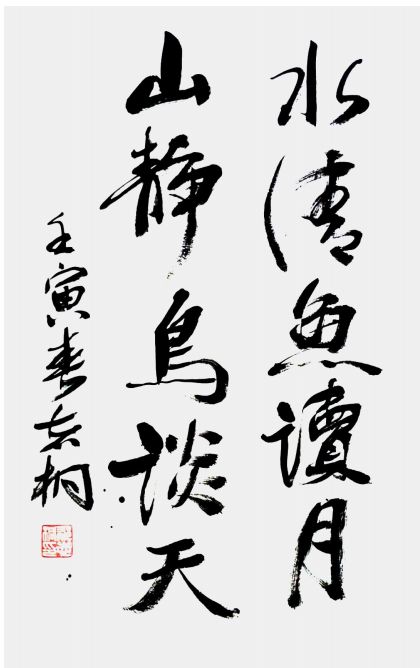 水清魚讀月
山靜鳥談天
壬寅春志桐